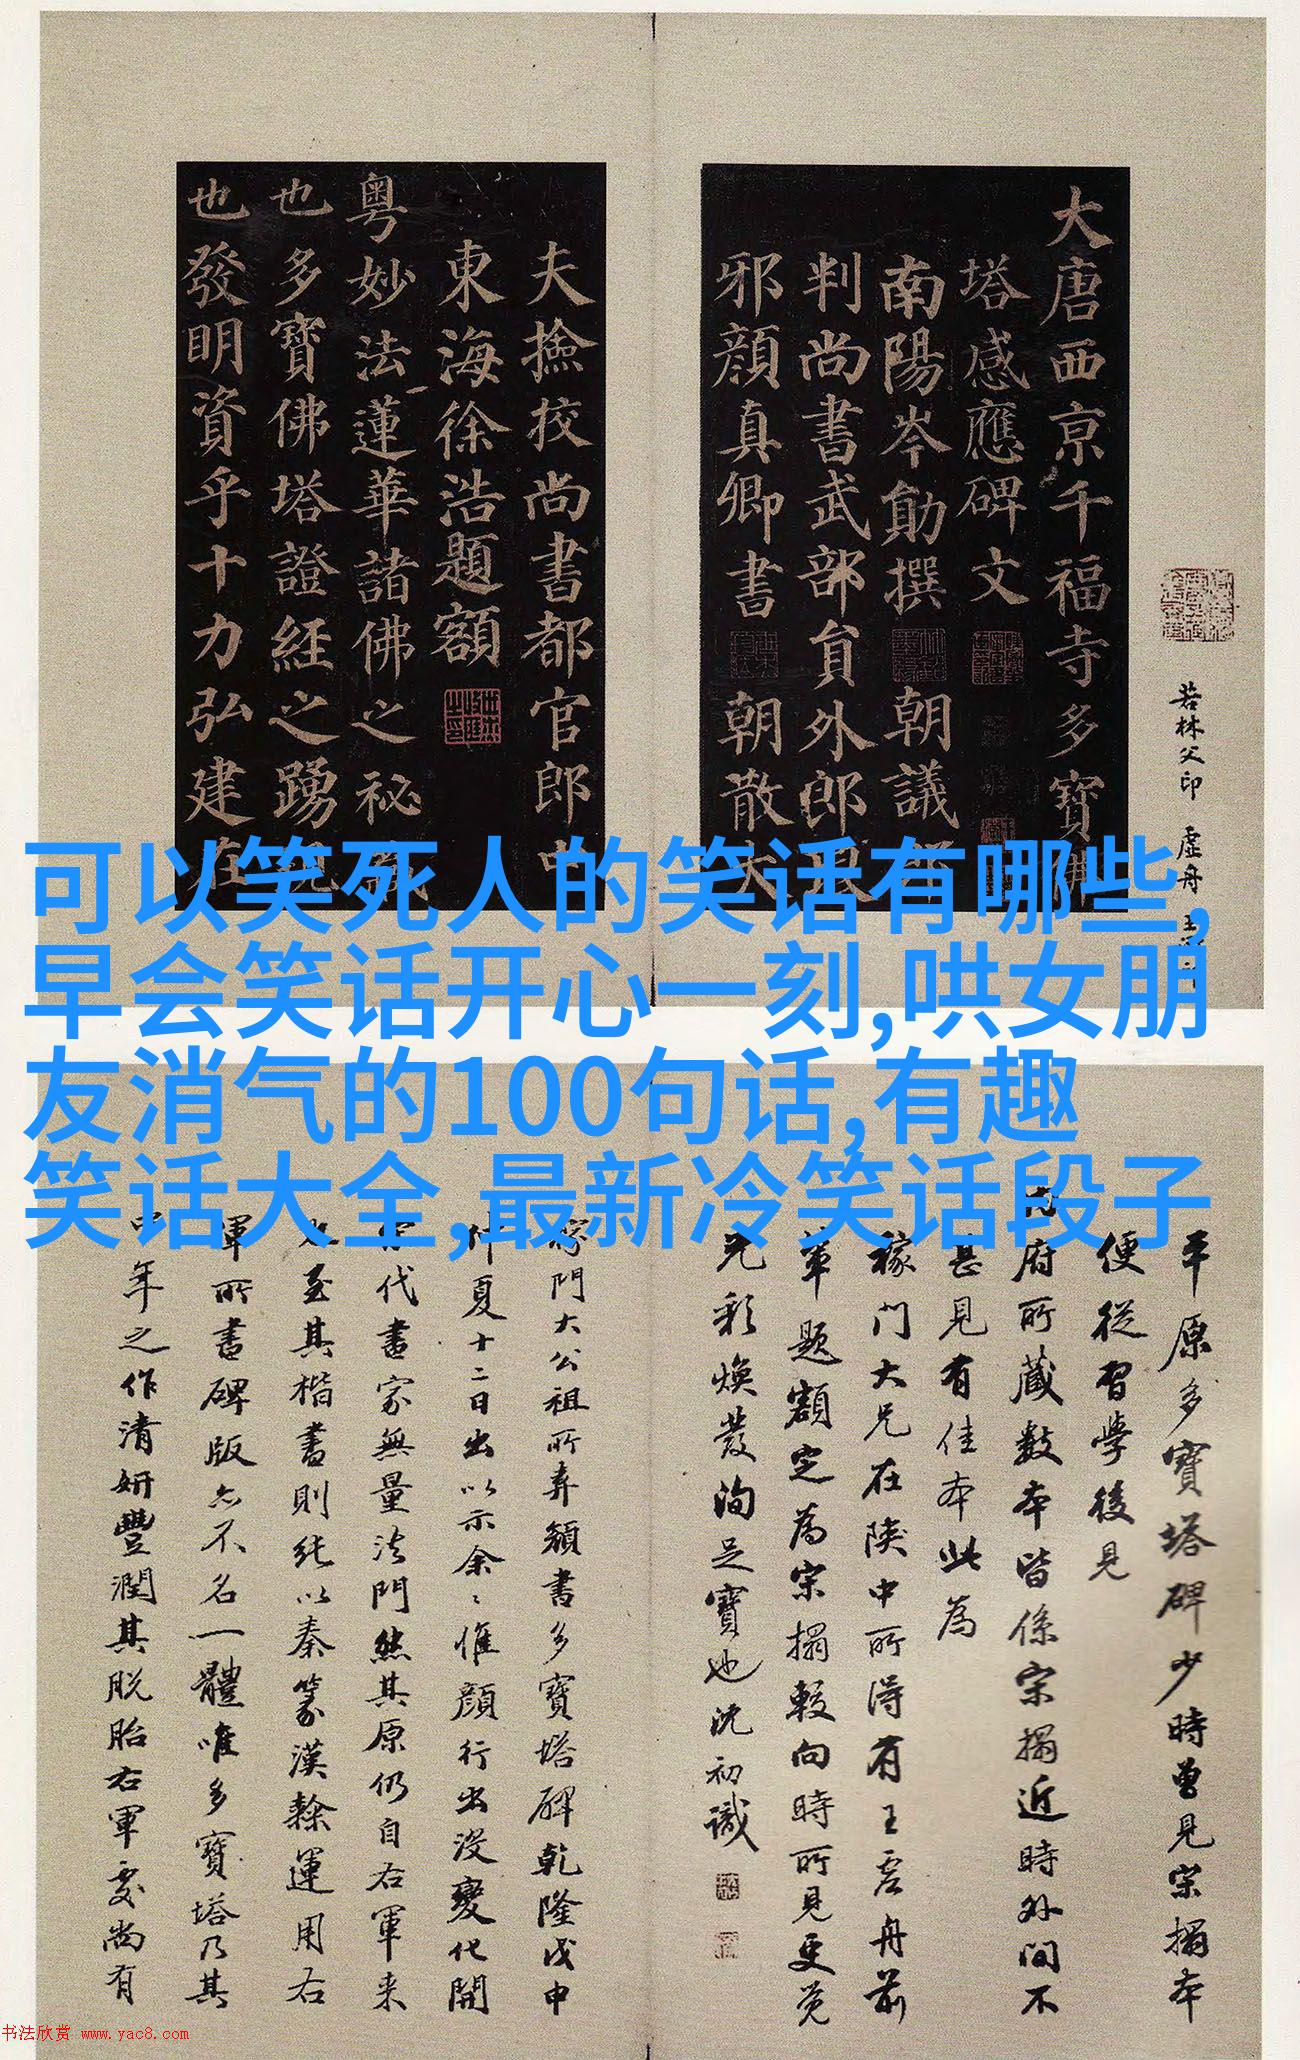 大唐西京千福寺多寶佛
塔感應碑文
南陽岑勛撰
朝議
判尚書武部員外郎琅
邪顏真卿書
朝散大
夫撿挍尚書都官郎中
東海徐浩題額
粵妙法蓮華諸佛之祕藏
也多寶佛塔證經之踴現
也發明資乎十力弘建在
若林父印
虛舟
可以笑死人的笑话有哪些,
早会笑话开心一刻,哄女朋
友消气的100句话,有趣
笑话大全,最新冷笑话段子
平原多寶塔碑少時曾見宋搨本
便從習學後見
府所藏數本皆係宋搨近時外間不
甚見有佳本此為
稼門大兄在陝中所得有王虛舟前
輩題額定為宋搨較向時所見更覺
光彩煥發洵足寶也沈初識
稼門大公祖所弆顏書多寶塔碑乾隆戊申
仲夏十二日出以示余:惟顏行出沒變化開
代書家無量法門然其原仍自右軍来
至其楷書則純以秦篆漢隸運用右
軍所書碑版亦不名一體唯多寶塔乃其
中年之作清妍豐潤其脫胎右軍處尚有
书法欣赏 www.yac8.com